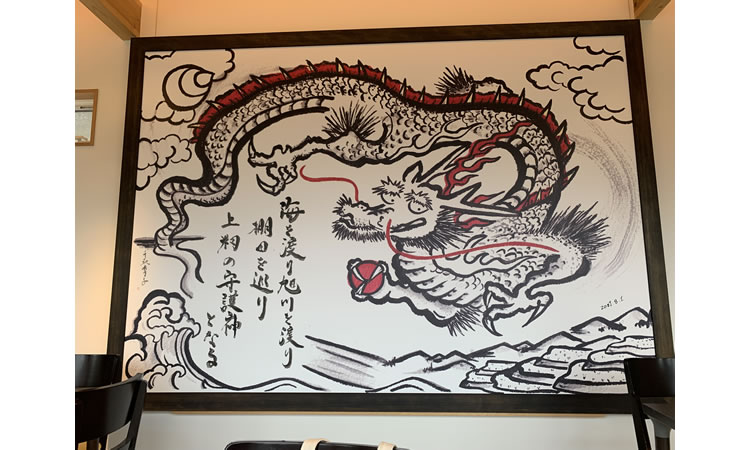 海を渡り旭川を渡り
棚田を巡り
上籾の守護神
となる